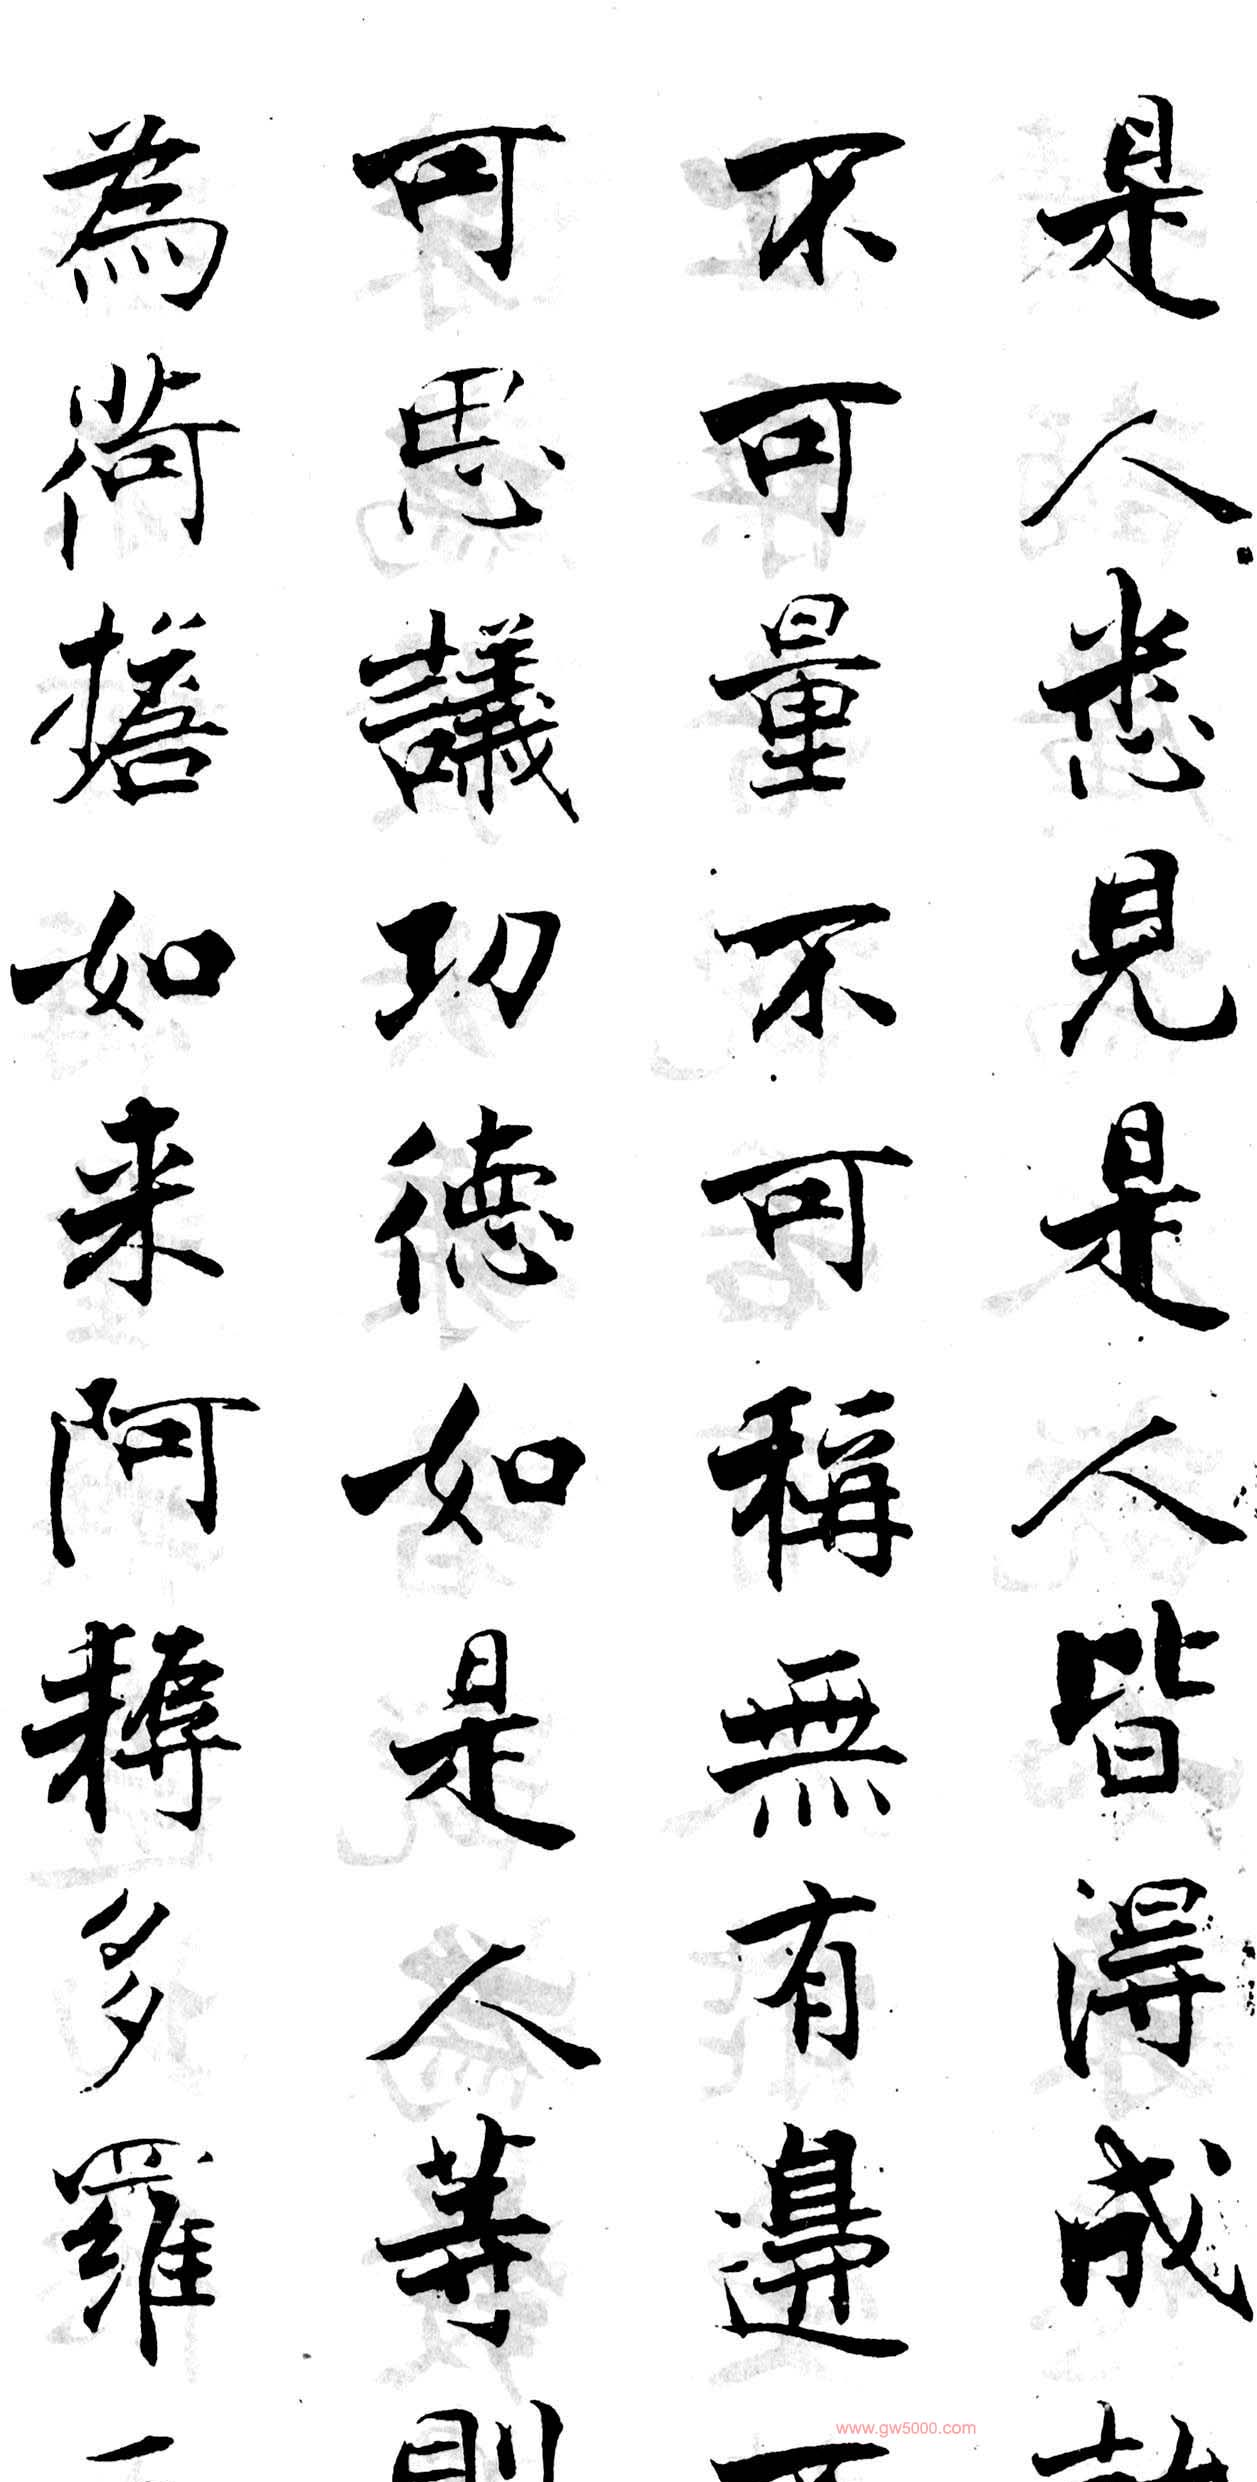 是人悉見是人皆得成
不可量不可稱無有邊不
可思議功德如是人等則
為荷擔如来阿耨多羅
www.gw5000.com